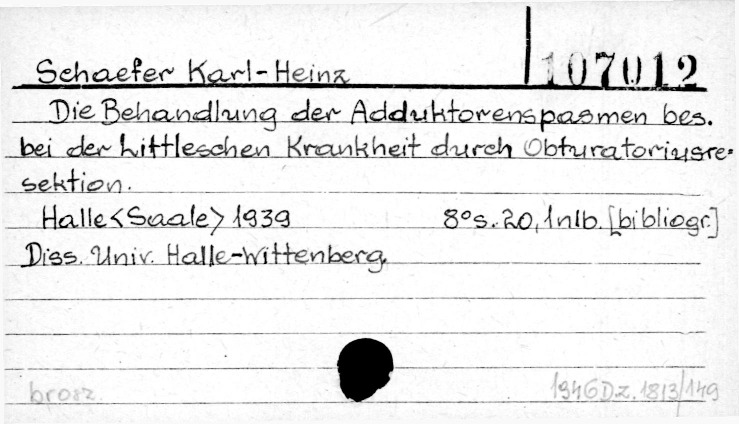 Schaefer Karl-Heinz 107012
Die Behandlung der Adduktorenspasmen bes.
bei der Littleschen Krankheit durch Obturatoriusre=
sektion.
Halle <Saale> 1939 8° s. 20, 1 nlb. [bibliogr.]
Diss. Univ. Halle-Wittenberg.
brosz. 1946 Dz. 1813/149